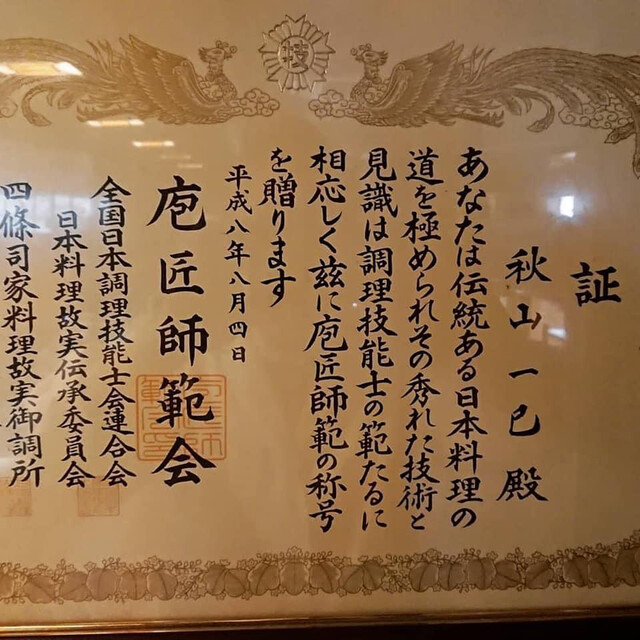 技
証
秋山一巳殿
あなたは伝統ある日本料理の
道を極められその秀れた技術と
見識は調理技能士の範たるに
相応しく茲に庖匠師範の称号
を贈ります
平成八年八月四日
庖匠師範会
全国日本調理技能士会連合会
日本料理故実伝承委員会
四條司家料理故実御調所